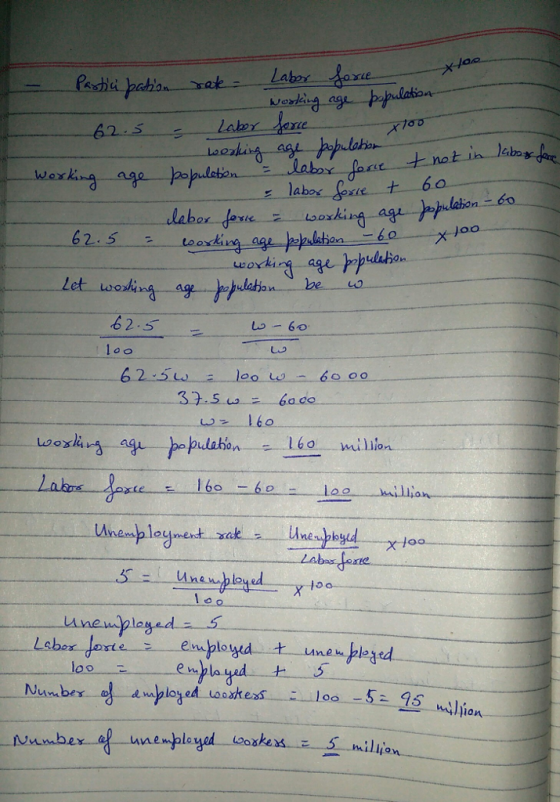 — Participation rate = Labor force / working age population × 100
62.5 = Labor force / working age population × 100
working age population = labor force + not in labor force
= labor force + 60
labor force = working age population - 60
62.5 = working age population - 60 / working age population × 100
Let working age population be w
62.5 / 100 = w - 60 / w
62.5w = 100w - 6000
37.5w = 6000
w = 160
working age population = 160 million
Labor force = 160 - 60 = 100 million
Unemployment rate = Unemployed / Labor force × 100
5 = Unemployed / 100 × 100
Unemployed = 5
Labor force = employed + unemployed
100 = employed + 5
Number of employed workers = 100 - 5 = 95 million
Number of unemployed workers = 5 million